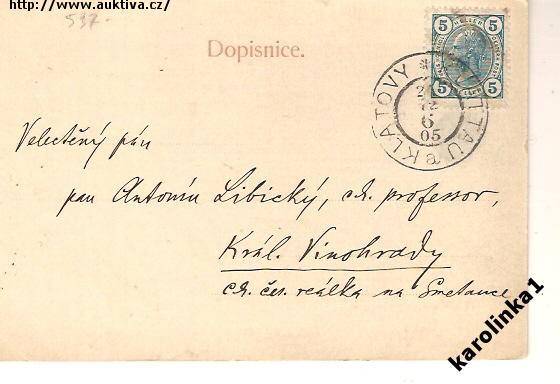 http://www.auktiva.cz/
597.
Dopisnice.
5 HELLER 5
5 5
KLATTAU KLATOVY
12
6
05
Velectěný pán
pan Antonín Libický, ck. professor,
Král. Vinohrady
ck. čes. reálka na Smetance
karolinka1